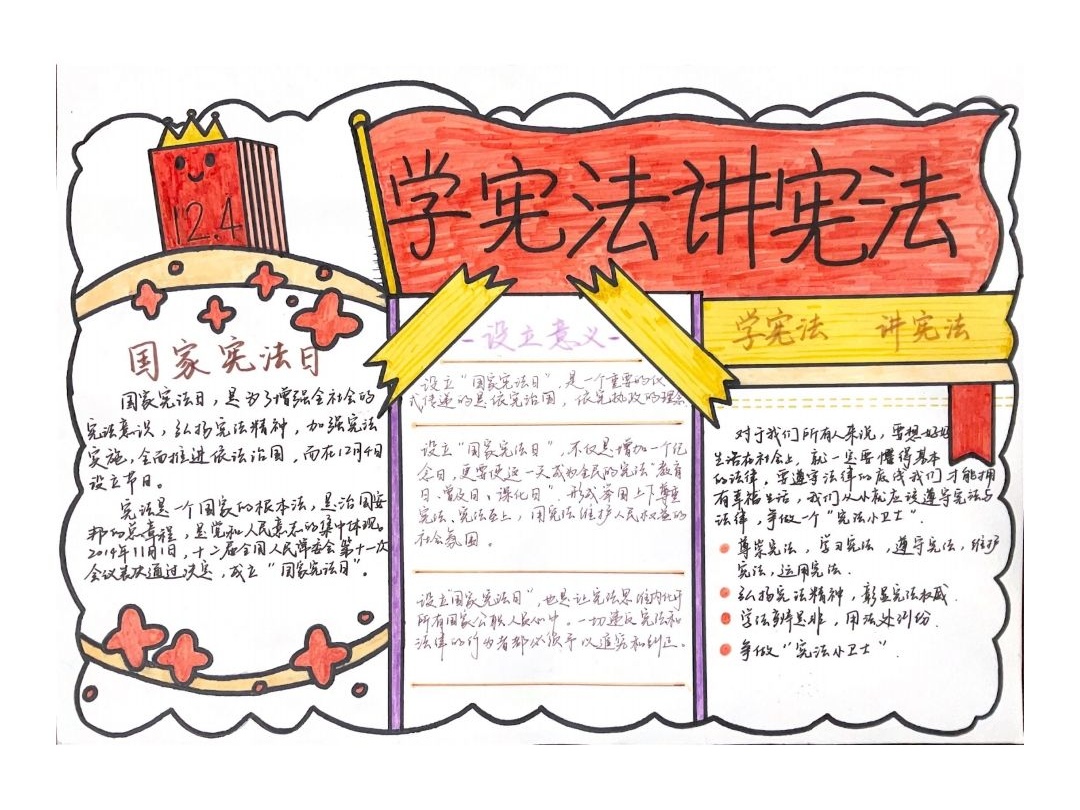 学宪法讲宪法
12.4
国家宪法日
国家宪法日，是为了增强全社会的
宪法意识，弘扬宪法精神，加强宪法
实施，全面推进依法治国，而在12月4日
设立节日。
宪法是一个国家的根本法，是治国安
邦的总章程，是党和人民意志的集中体现。
2014年11月1日，十二届全国人民常委会第十一次
会议表决通过决定，成立“国家宪法日”。
-设立意义-
设立“国家宪法日”，是一个重要的仪
式传递的是依宪治国，依宪执政的理念
设立“国家宪法日”，不仅是增加一个纪
念日，更要使这一天成为全民的宪法“教育
日、普及日、深化日”，形成举国上下尊重
宪法、宪法至上，用宪法维护人民权益的
社会氛围。
设立“国家宪法日”，也是让宪法思维内化于
所有国家公职人员心中。一切违反宪法和
法律的行为者都必须予以追究和纠正。
学宪法 讲宪法
对于我们所有人来说，要想好好
生活在社会上，就一定要懂得基本
的法律，要遵守法律的底线我们才能拥
有幸福生活，我们从小就应该遵守宪法与
法律，争做一个“宪法小卫士”.
尊崇宪法，学习宪法，遵守宪法，维护
宪法，运用宪法.
弘扬宪法精神，彰显宪法权威.
学法辨是非，用法处纠纷.
争做“宪法小卫士”.